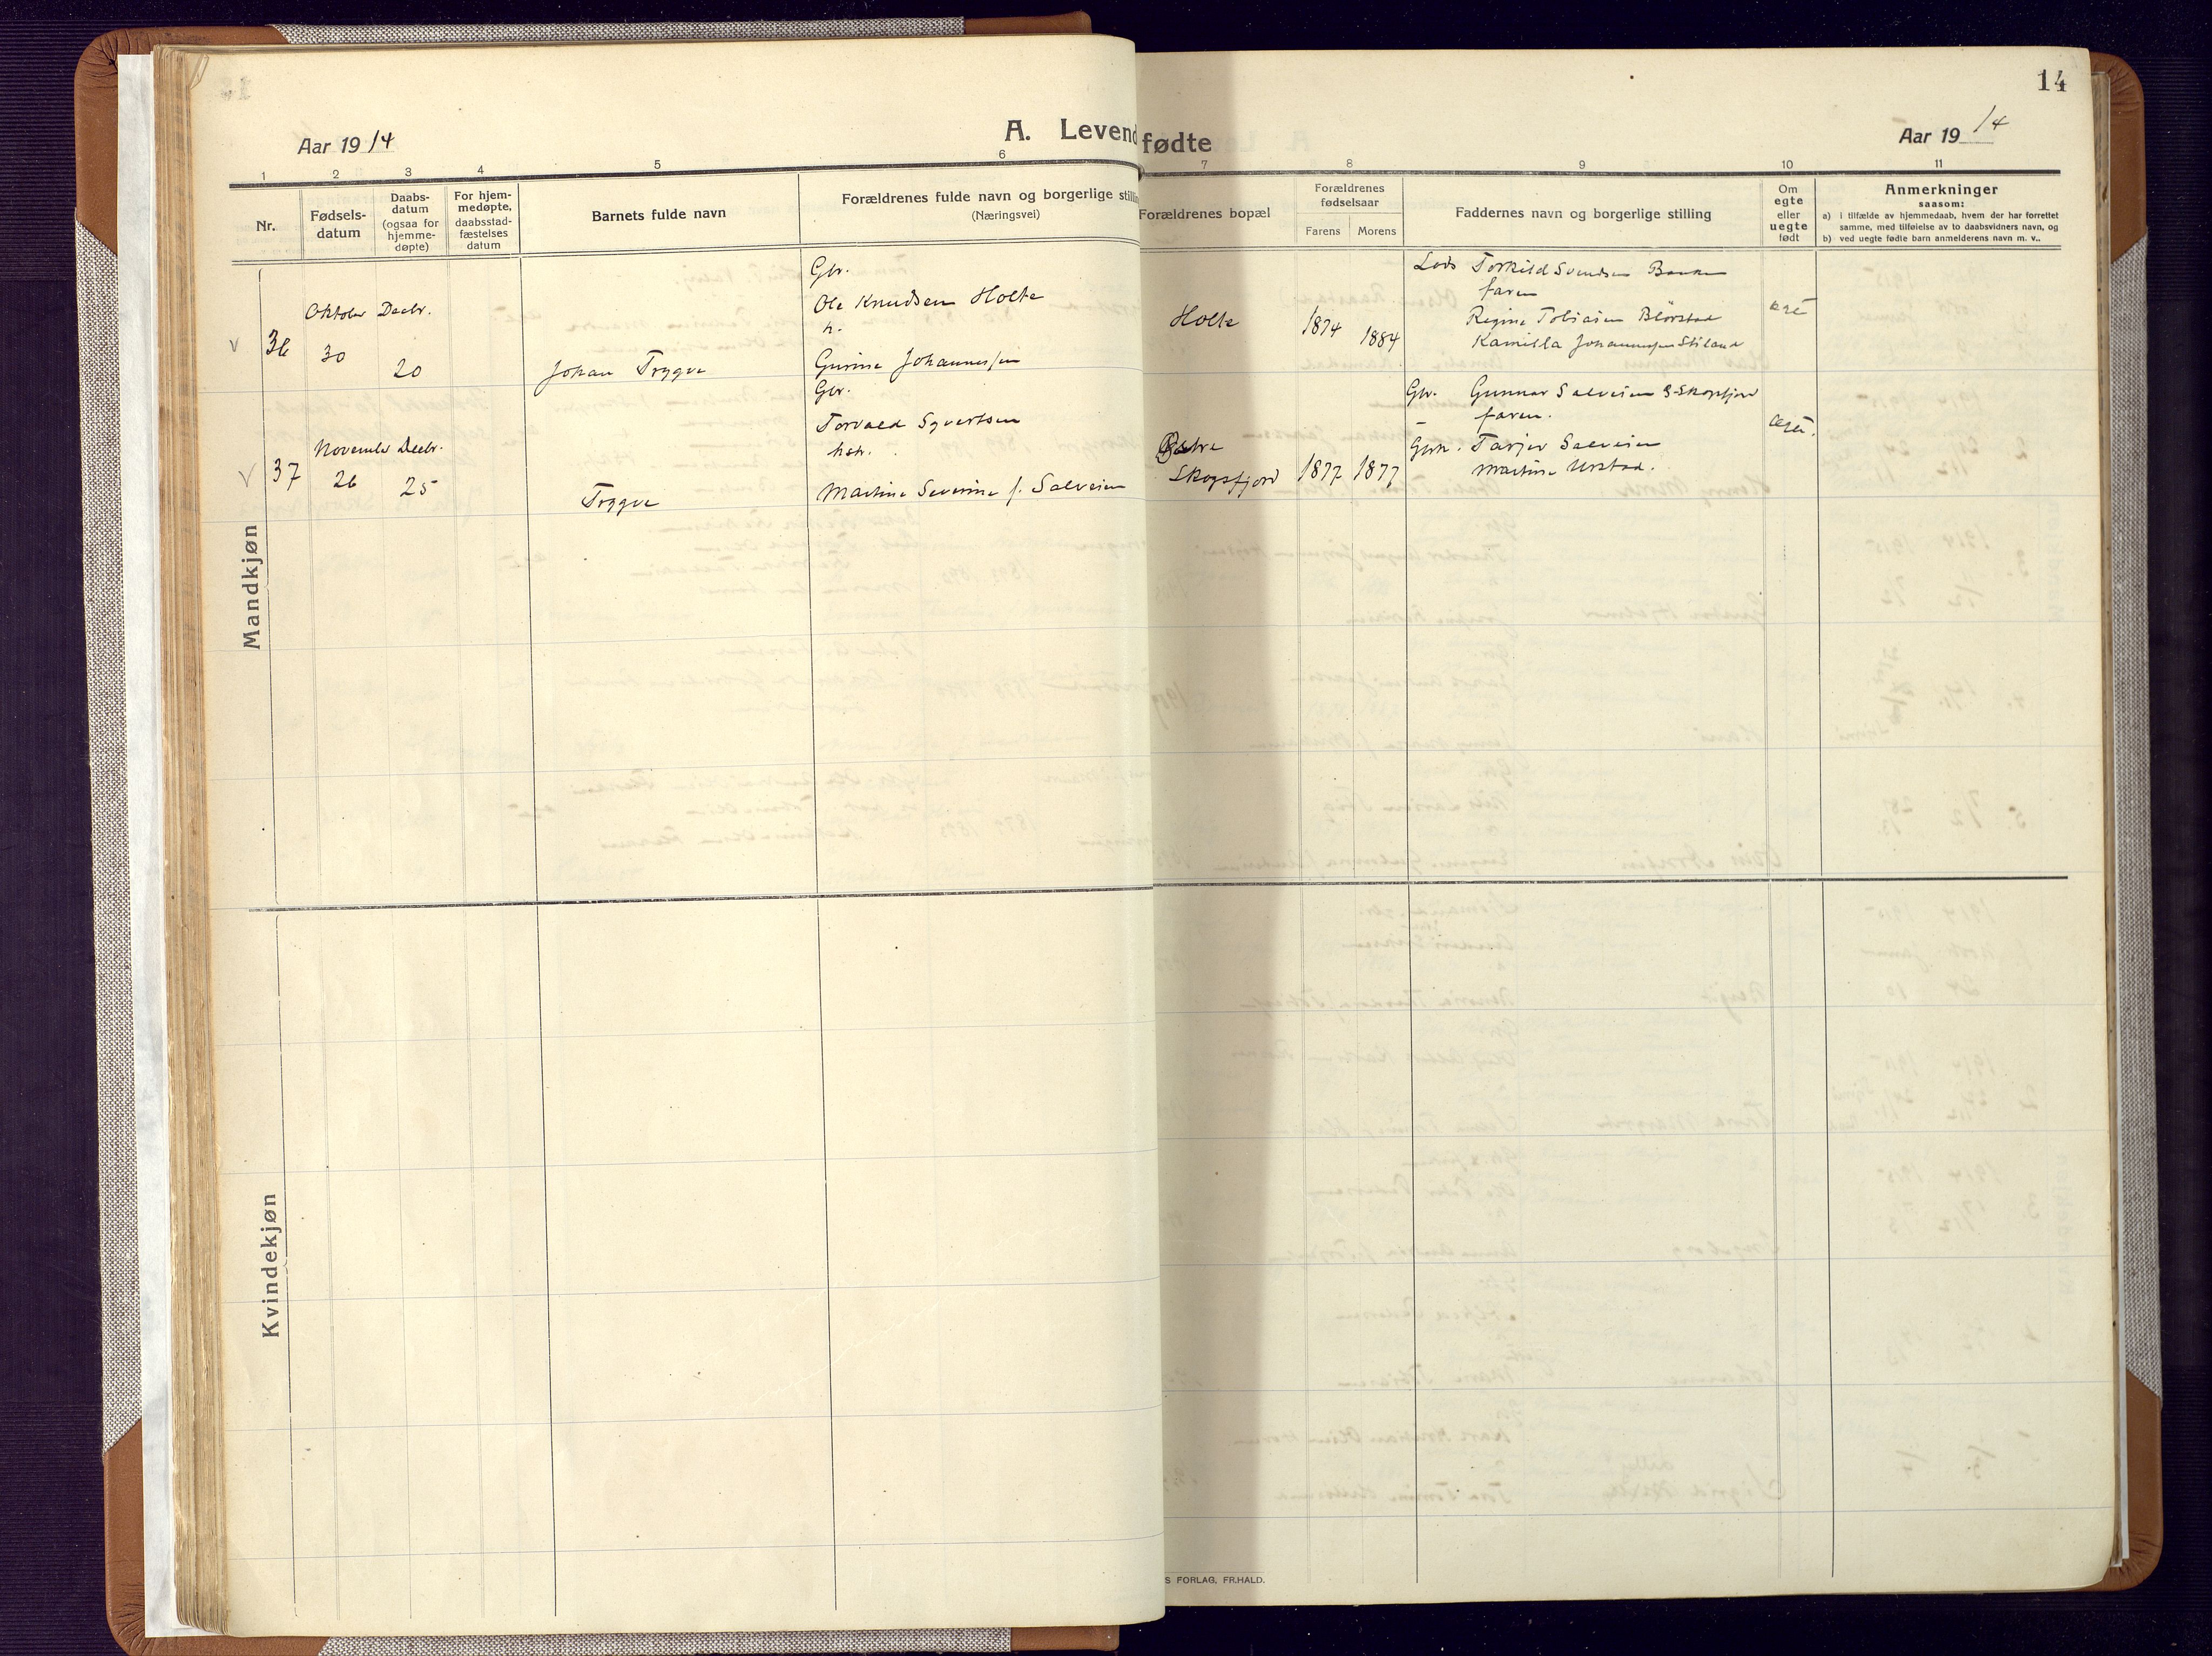 14
Aar 1914
A. Levend
fødte
Aar 1914
1 2 3 4 5 6 7 8 9 10 11
Nr.
Fødsels-
datum
Daabs-
datum
(ogsaa for
hjemme-
døpte)
For hjem-
medøpte,
daabsstad-
fæstelses
datum
Barnets fulde navn
Forældrenes fulde navn og borgerlige stillin
(Næringsvei)
Forældrenes bopæl
Forældrenes
fødselsaar
Farens Morens
Faddernes navn og borgerlige stilling
Om
egte
eller
uegte
født
Anmerkninger
saasom:
a) i tilfælde av hjemmedaab, hvem der har forrettet
samme, med tilføielse av to daabsvidners navn, og
b) ved uegte fødte barn anmelderens navn m. v..
Mandkjøn
V 36
Oktober Decbr.
30 20
Johan Trygve
Gbr.
Ole Knudsen Holte
h.
Gurine Johannessen
Holte
1874 1884
Lods Torkild Svendsen
faren
Regine Tobiasen
Kamilla Johannessen Stiland
egte
V 37
November Decbr.
26 25
Trygve
Gbr.
Torvald Syvertsen
hstr.
Martine Severine f. Salvesen
Østre
Skogsfjord
1877 1877
Gbr. Gunnar Salvesen Ø-Skogsfjord
faren.
Gbrk. Tarjer Salvesen
Martine Urstad.
egte.
Kvindekjøn
S FORLAG, FR.HALD.